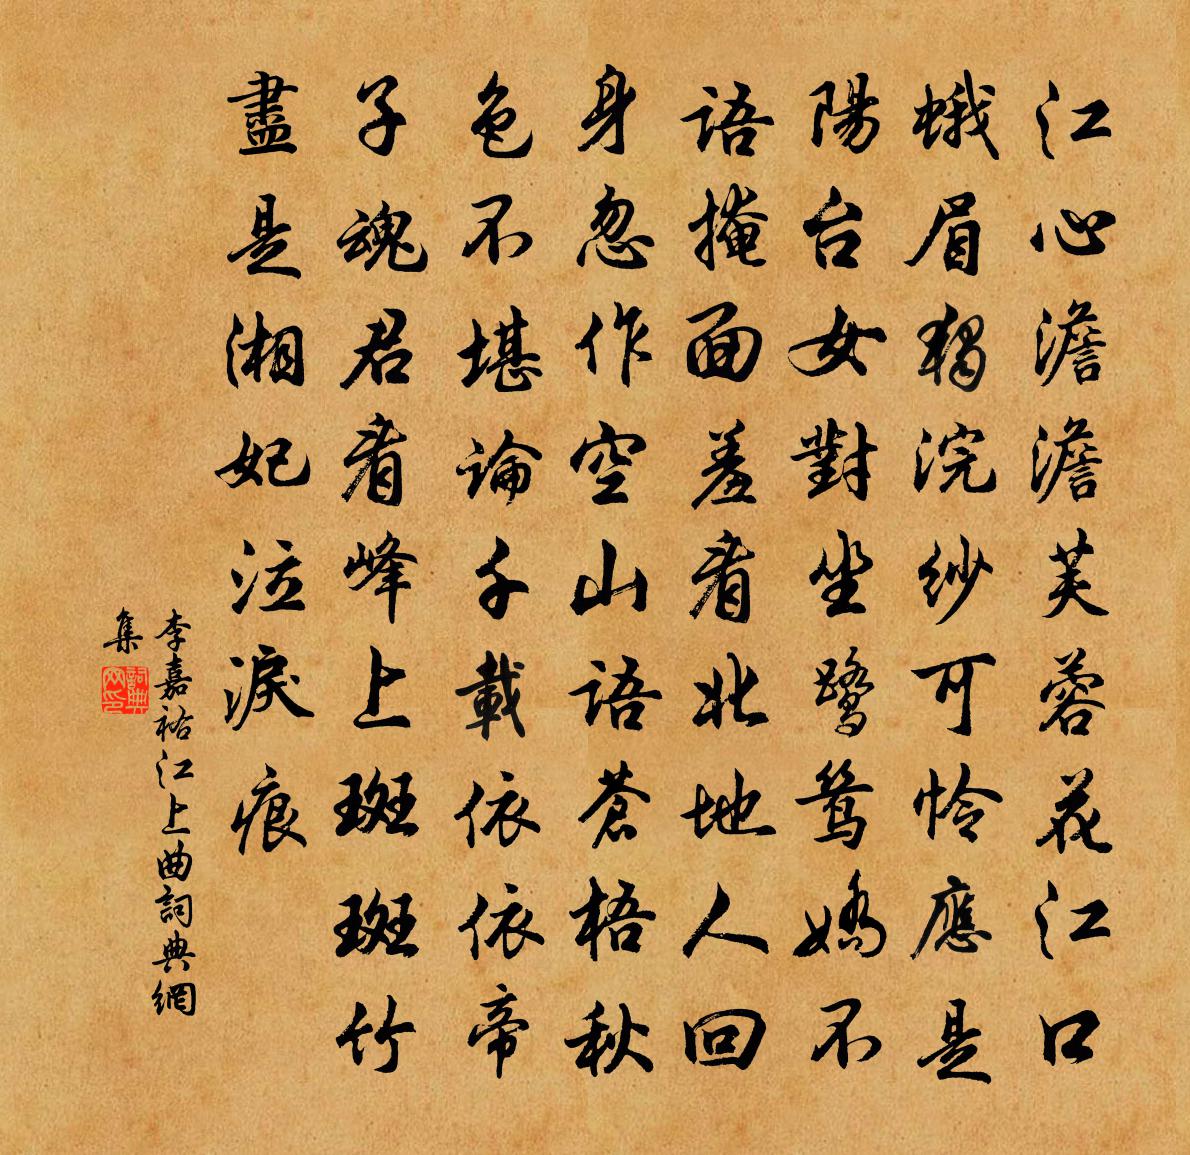 江心澹澹芙蓉花江口
蛾眉獨浣紗可怜應是
陽台女對坐鷺鷥嬌不
語掩面羞看北地人回
身忽作空山語蒼梧秋
色不堪論千載依依帝
子魂君看峰上斑斑竹
盡是湘妃泣淚痕
李嘉祐江上曲詞典網
集
詞典網印